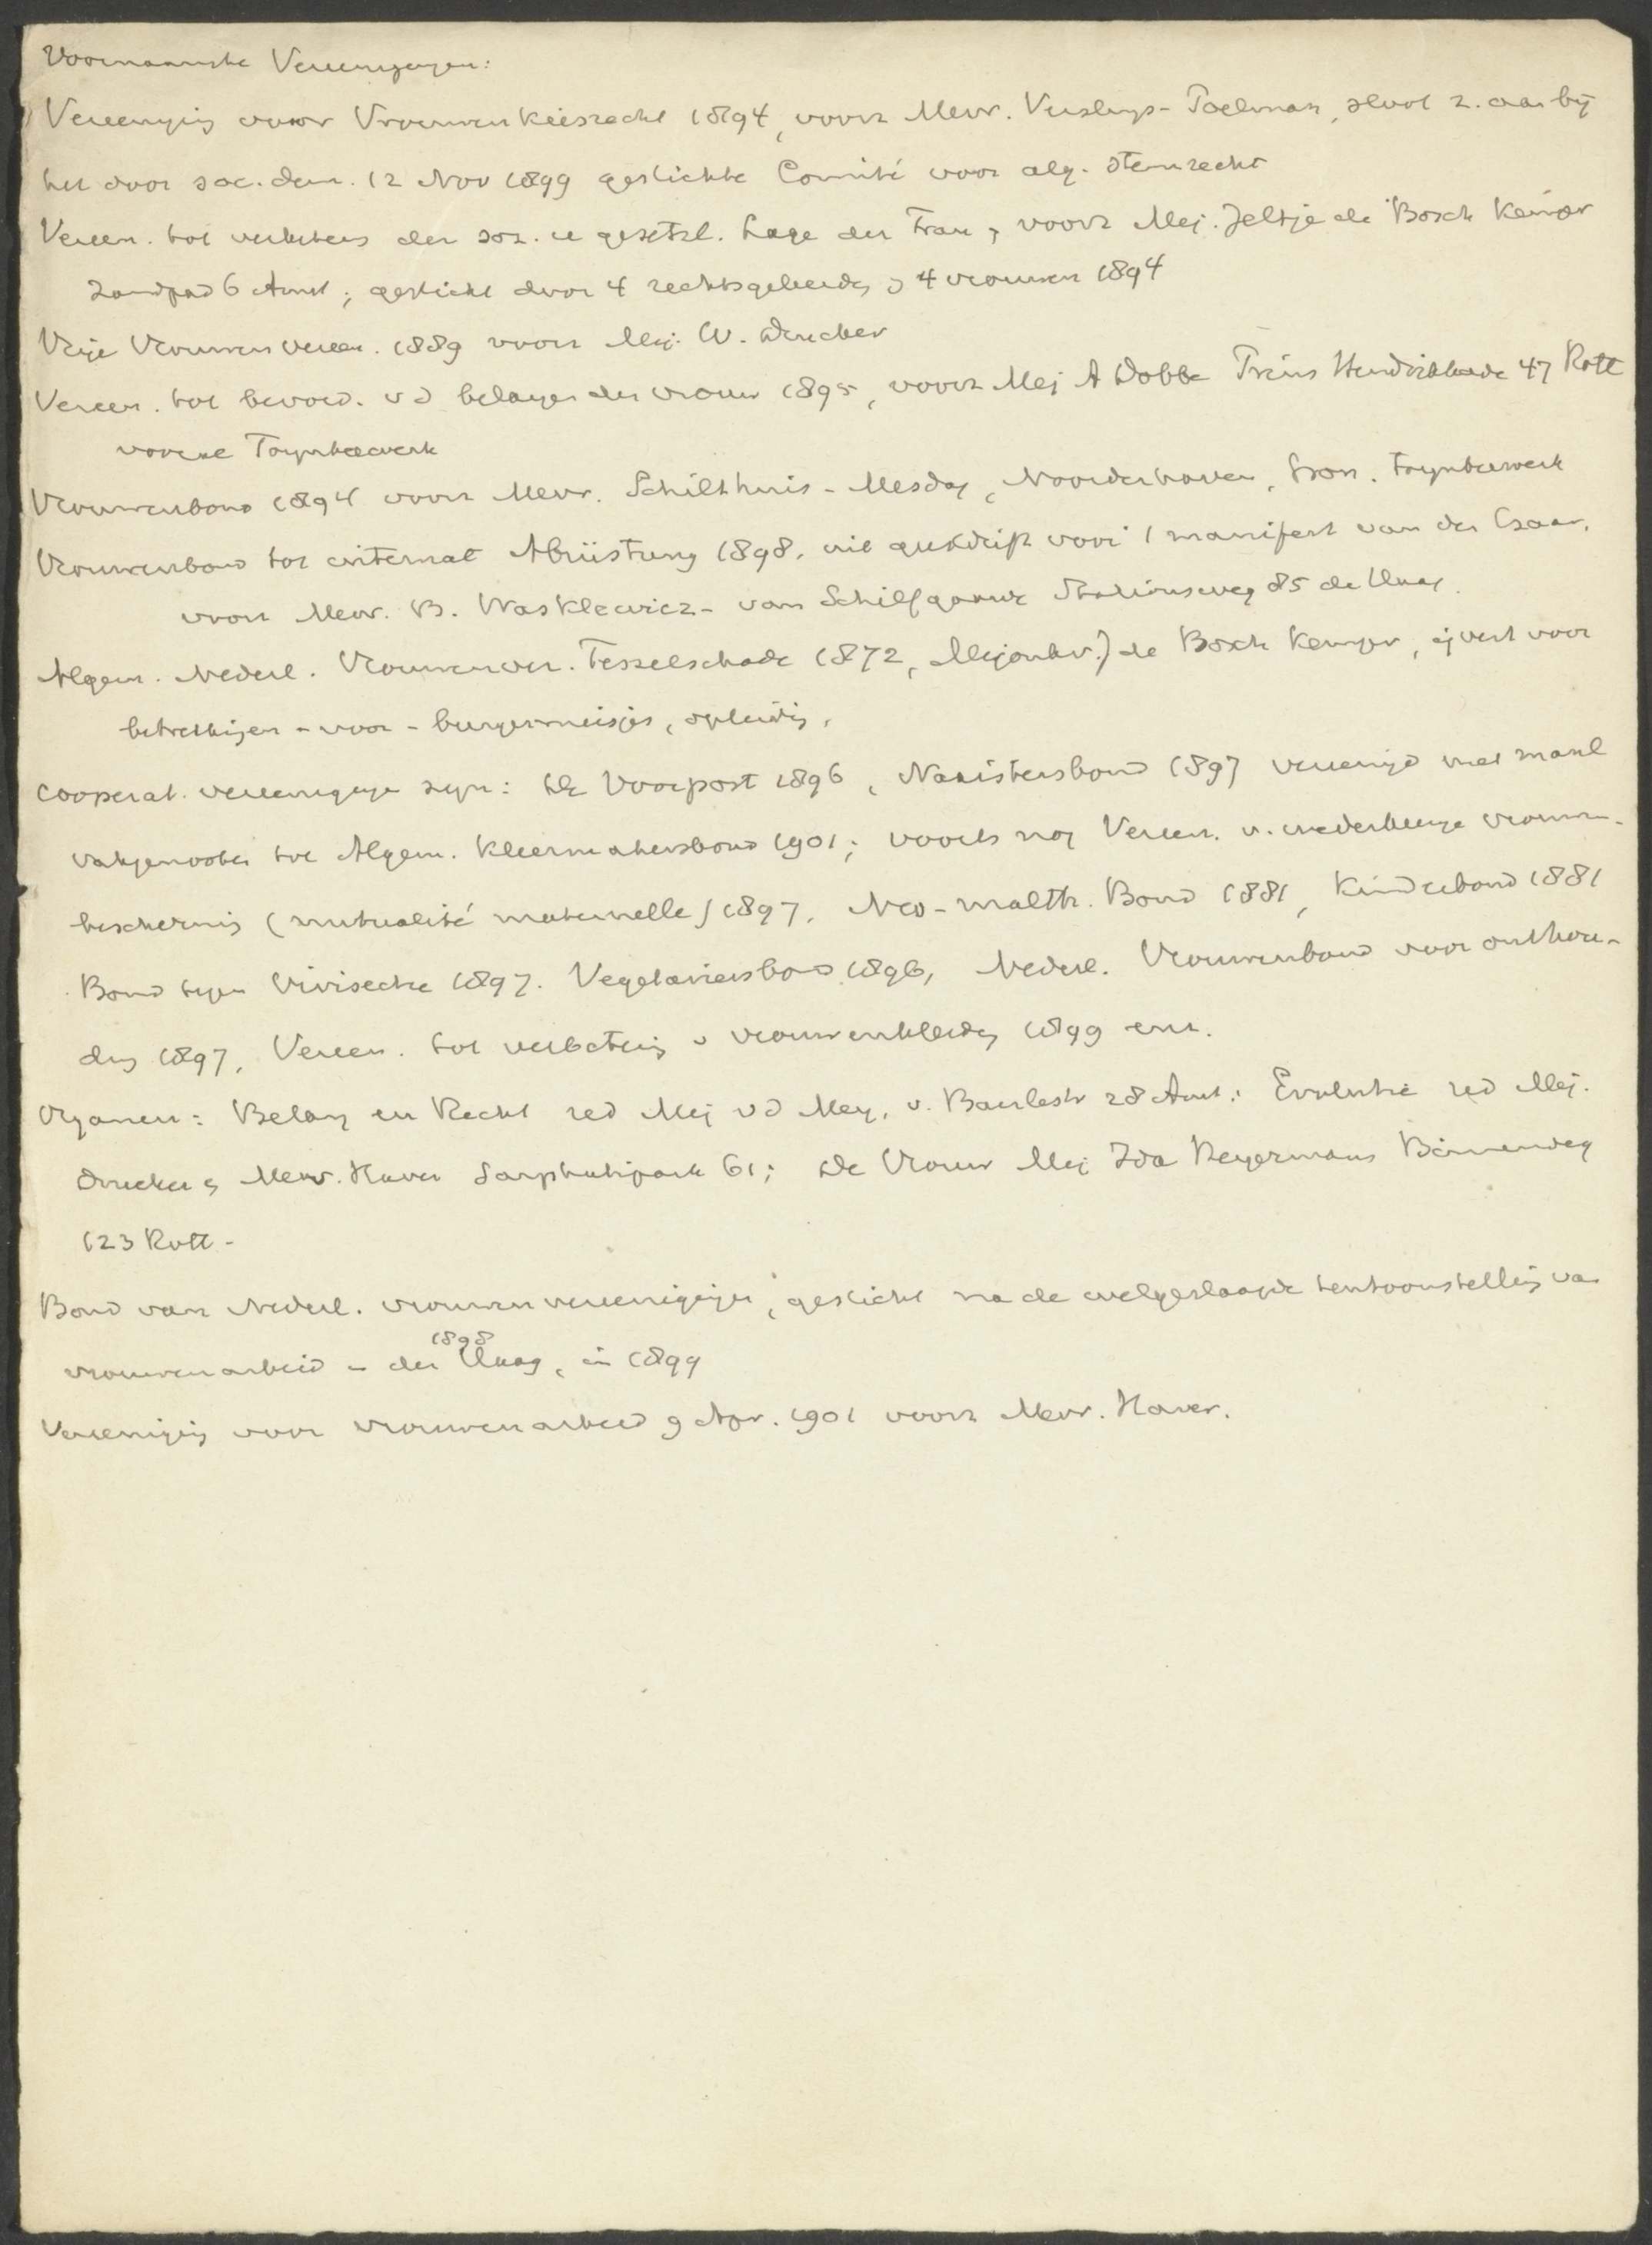 Voornaamste Vereenigingen:
Vereeniging voor Vrouwenkiesrecht 1894, voorz Mevr. Versluys-Poelman, sloot z. aan bij
het door soc. dem. 12 Nov 1899 gestichte Comité voor alg. stemrecht
Vereen. tot verbeters der soz. u gesetzl. Lage der Frau, voorz Mej. Jeltje de Bosch Kemper
Zandpad 6 Amst; gesticht door 4 rechtsgeleerdn 4 vrouwen 1894
Vrije Vrouwen vereen. 1889 voorz Mej. W. Drucker
Vereen. tot bevord. vd belangen der vrouw 1895, voorz Mej A Dobbe Prins Hendrikkade 47 Rott
vooral Toynbeewerk
Vrouwenbond 1894 voorz Mevr. Schilthuis-Mesdag, Noorderhaven, Gron. Toynbeewerk
Vrouwenbond tot internat Abrüstung 1898, uit geestdrift voor 1 manifest van den Czaar,
voorz Mevr. B. Wasklewicz-van Schilfgaarde Stationsweg 85 de Haag.
Algem. Nederl. Vrouwenver. Tesselschade 1872, Mejonkvr. J de Bosch Kemper, ijvert voor
betrekkingen - voor - burgermeisjes, opleidig,
Cooperat. vereenigingen zijn: De Voorpost 1896, Naaistersbond 1897 vereenigd met manl
vakgenooten tot Algem. Kleermakersbond 1901; voorts nog Vereen. v. onderlinge vrouwen-
beschermig (mutualité maternelle) 1897, Neo-malth. Bond 1881, Kinderbond 1881
Bond tegen Vivisectie 1897. Vegetariersbond 1896, Nederl. Vrouwenbond voor onthou-
ding 1897, Vereen. tot verbetering v vrouwenkleding 1899 enz.
Organen: Belang en Recht red Mej vd Mey, v. Baerlestr 28 Amst: Evolutie red Mej.
Drucker & Mevr. Haver Sarphatipark 61; De Vrouw Mej Ida Heyermans Binnenweg
123 Rott-
Bond van Nederl. vrouwenvereenigingen, gesticht na de welgeslaagde tentoonstelling van
vrouwenarbeid in den Haag 1898, in 1899
Vereeniging voor vrouwenarbeid 9 Apr. 1901 voorz Mevr. Haver.